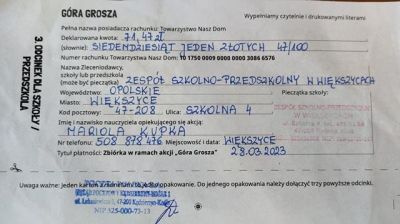 GÓRA GROSZA
Wypełniamy czytelnie i drukowanymi literami
Pełna nazwa posiadacza rachunku: Towarzystwo Nasz Dom
Deklarowana kwota: 71,47 zł
(słownie): SIEDENDZIESIĄT JEDEN ZŁOTYCH 47/100
Numer rachunku Towarzystwo Nasz Dom: 10 1750 0009 0000 0000 3086 6576
Nazwa Zleceniodawcy,
szkoły lub przedszkola
(może być pieczątka) ZESPÓŁ SZKOLNO-PRZEDSZKOLNY W WIĘKSZYCACH
Województwo: OPOLSKIE
Pieczątka szkoły:
Miasto: WIĘKSZYCE
ZESPÓŁ SZKOLNO-PRZEDSZKOLNY
Kod pocztowy: 47-208 Ulica: SZKOLNA 4
Imię i nazwisko nauczyciela opiekującego się akcją:
MARIOLA KUPKA
Nr telefonu: 508 878 476 Miejscowość i data: WIĘKSZYCE
Tytuł płatności: Zbiórka w ramach akcji „Góra Grosza" 28.03.2023
Uwaga ważne: Jeden karton opakowanie. Do jednego opakowania należy dołączyć trzy powyższe odcinki.
NIP 525-000-73-13
3. ODCINEK DLA SZKOŁY /
PRZEDSZKOLA